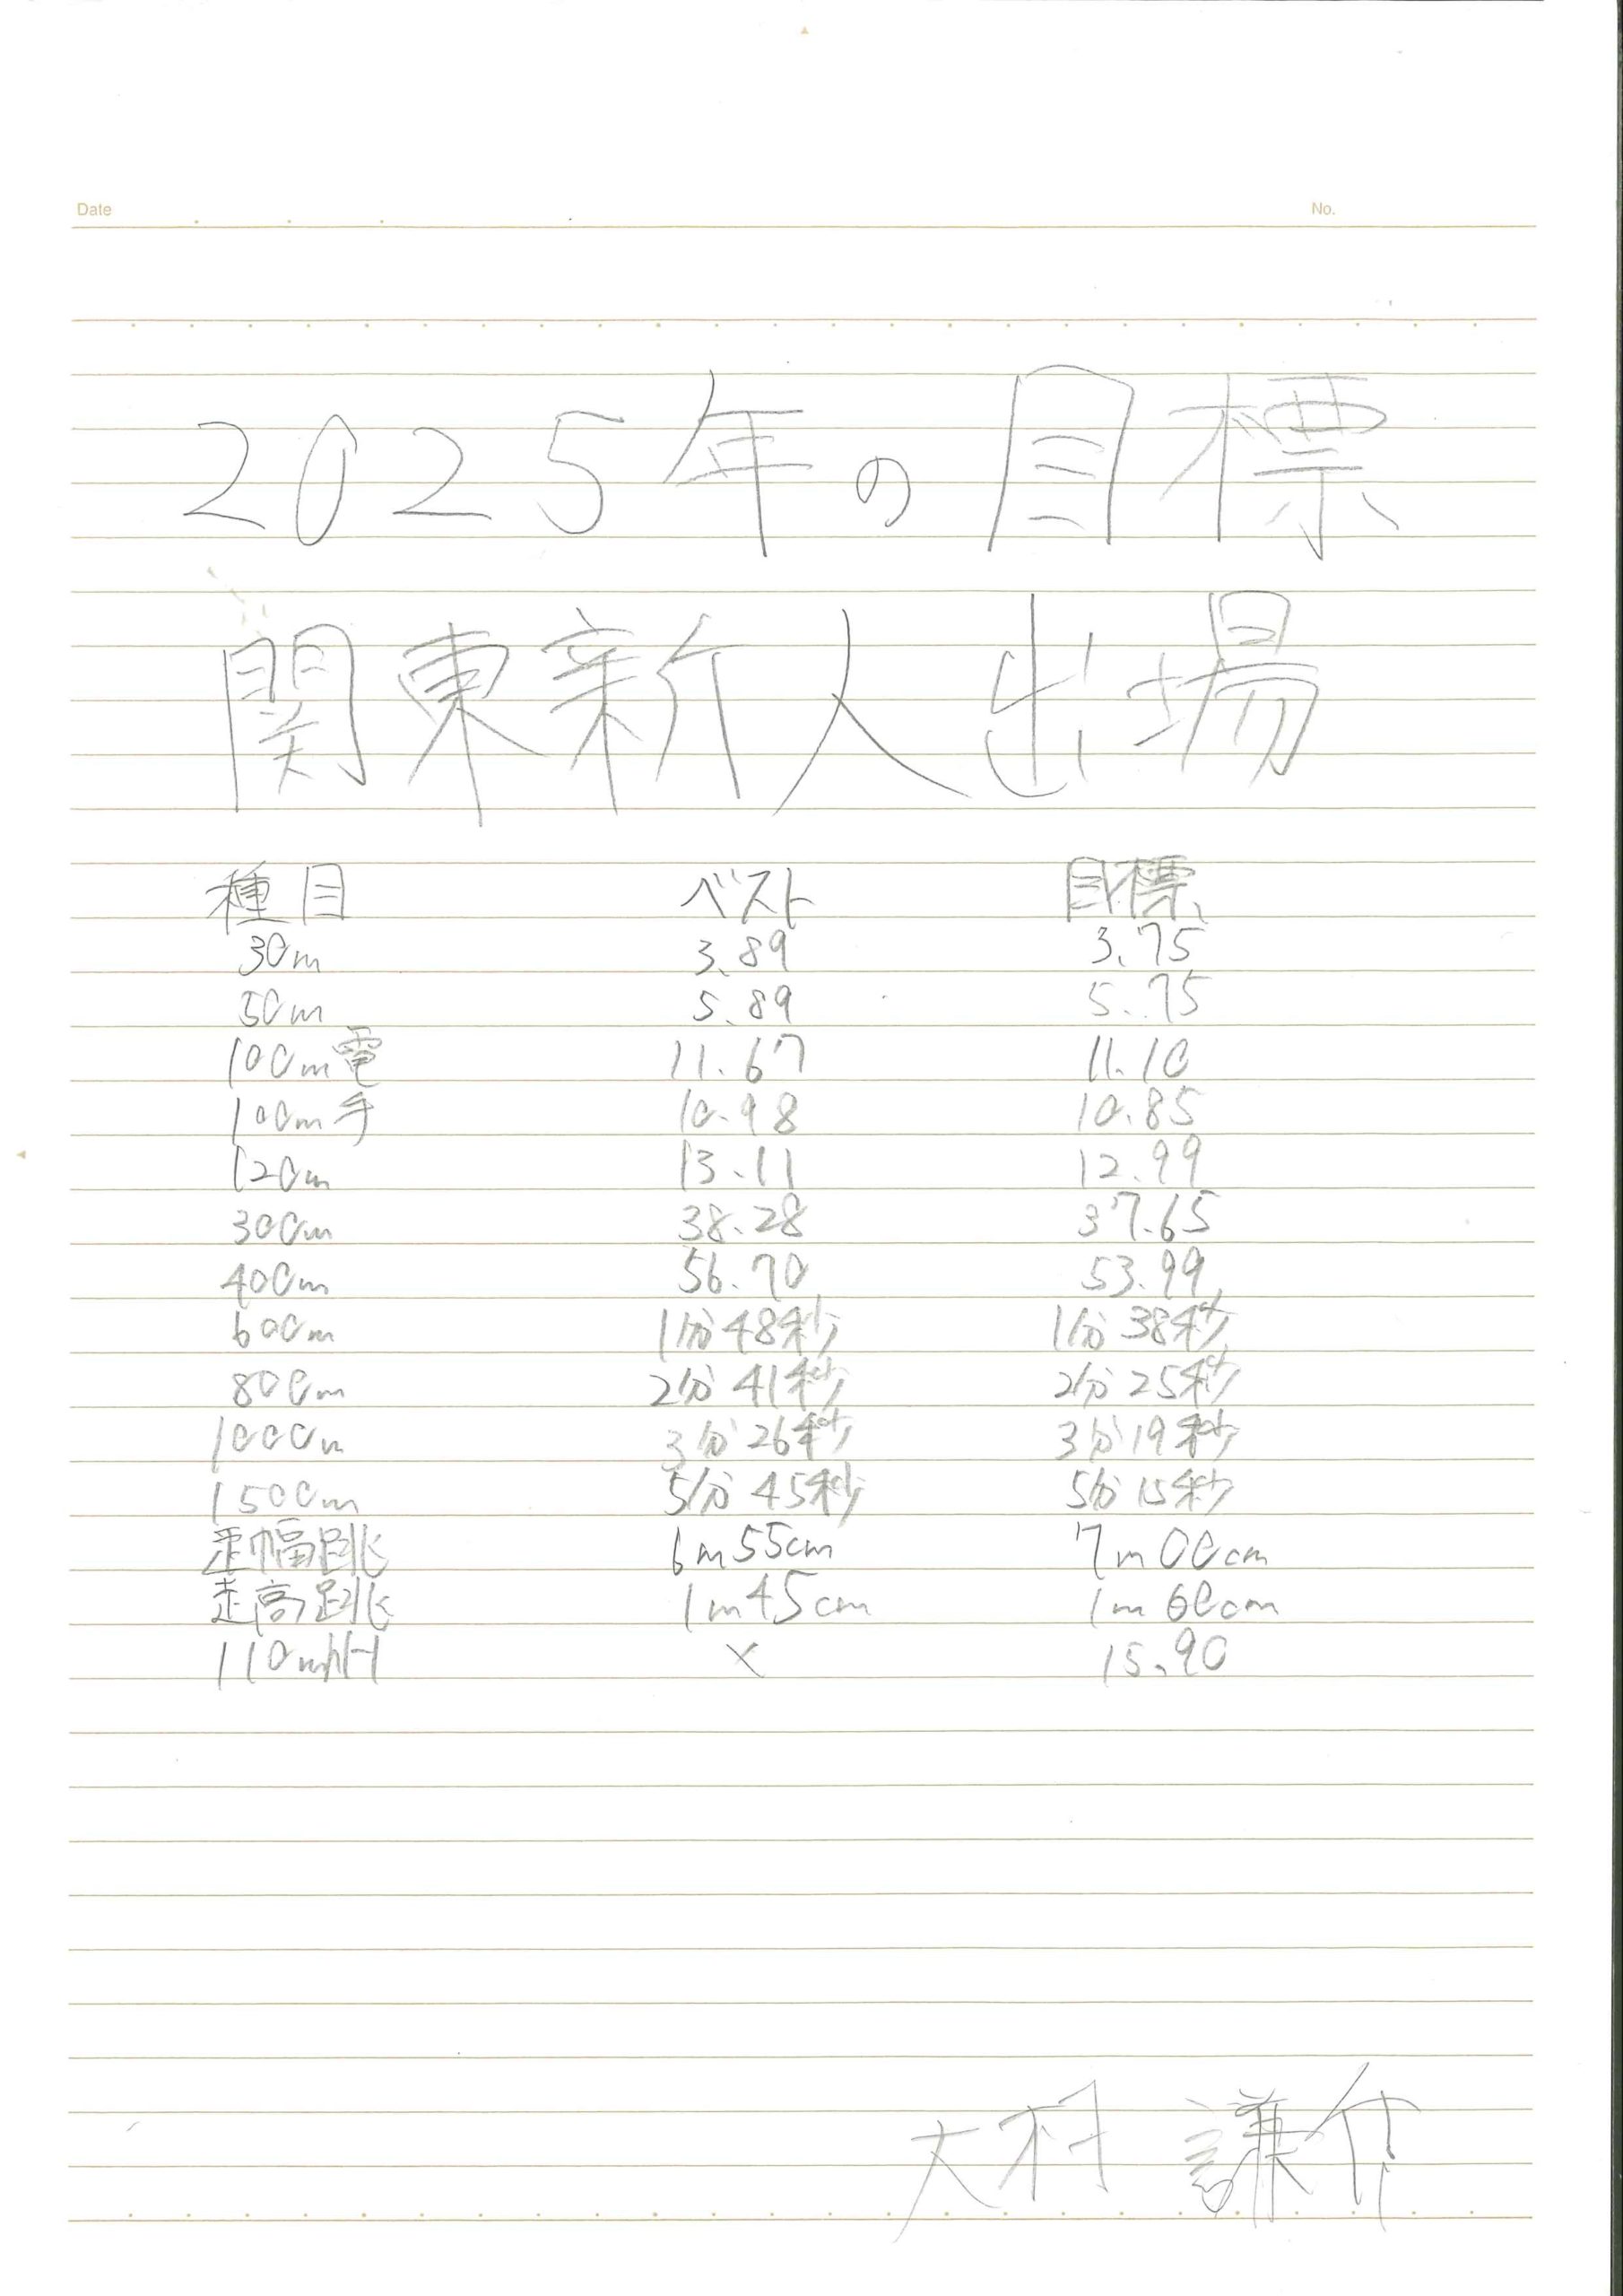 Date No.
2025年の目標
関東新人出場
種目 ベスト 目標
30m 3.89 3.75
50m 5.89 5.75
100m電 11.67 11.10
100m手 10.98 10.85
120m 13.11 12.99
300m 38.28 37.65
400m 56.70 53.99
600m 1分48秒 1分38秒
800m 2分41秒 2分25秒
1000m 3分26秒 3分19秒
1500m 5分45秒 5分15秒
走幅跳 6m55cm 7m00cm
走高跳 1m45cm 1m60cm
110mH × 15.90
大村 謙介